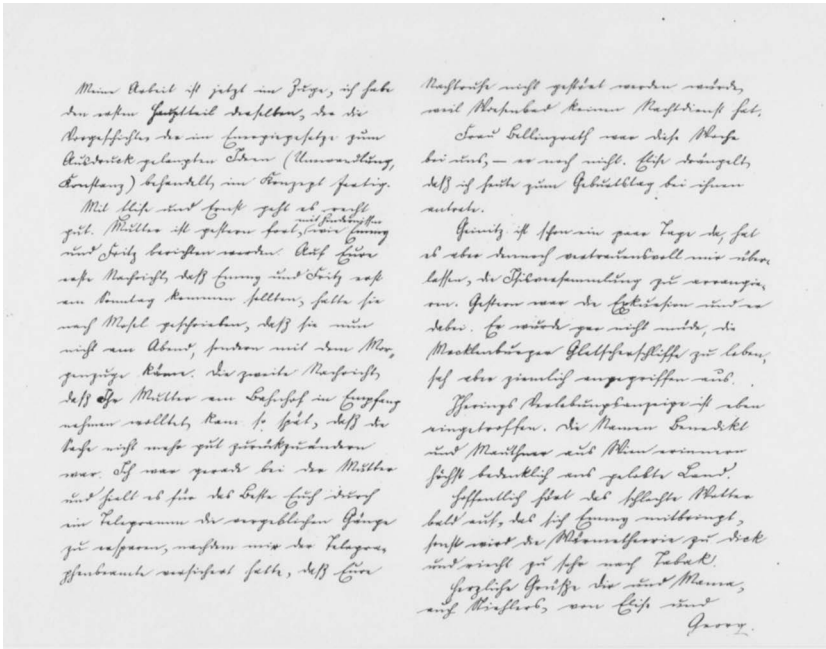 Meine Arbeit ist jetzt im Zuge, ich habe
den ersten Hauptteil derselben, der die
Vorgeschichte der im Energiegesetze zum
Ausdruck gelangten Ideen (Umwandlung,
Konstanz) behandelt, im Konzept fertig.
Mit Elise und Ernst geht es recht
gut. Mutter ist gestern fort, wie Emmy
mit Hindernissen
und Fritz berichten werden. Auf Eure
erste Nachricht, daß Emmy und Fritz erst
am Sonntag kommen sollten, hatte sie
nach Mosel geschrieben, daß sie nun
nicht am Abend, sondern mit dem Mor-
genzuge käme. Die zweite Nachricht,
daß Ihr Mutter am Bahnhof in Empfang
nehmen wolltet, kam so spät, daß die
Sache nicht mehr gut zurückzuändern
war. Ich war gerade bei der Mutter
und hielt es für das Beste Euch durch
ein Telegramm die vergeblichen Gänge
zu ersparen, nachdem mir der Telegra-
phenbeamte versichert hatte, daß Eure
Nachtruhe nicht gestört werden würde,
weil keinen Nachtdienst hat.
Frau Bellingrath war diese Woche
bei uns, – er noch nicht. Elise drängelt,
daß ich heute zum Geburtstag bei ihnen
antrete.
Geinitz ist schon ein paar Tage da, hat
es aber dennoch vertrauensvoll mir über-
lassen, die Isisversammlung zu arrangie-
ren. Gestern war die Exkursion und er
dabei. Er wurde gar nicht müde, die
Mecklenburger Gletscherschliffe zu loben,
sah aber ziemlich angegriffen aus.
Iherings Verlobungsanzeige ist eben
eingetroffen. Die Namen Benedikt
und Mauthner aus Wien erinnern
höchst bedenklich ans gelobte Land.
Hoffentlich hört das schlechte Wetter
bald auf, das sich Emmy mitbringt,
sonst wird die Wärmetheorie zu dick
und riecht zu sehr nach Tabak.
Herzliche Grüße Dir und Mama,
auch Kiehlers, von Elise und
Georg.